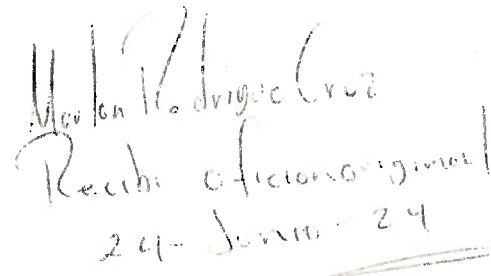 Marlon Rodrigue Cruz
Recibi oficio original
24-Junio-24